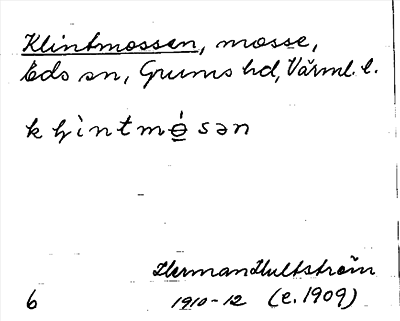 Klintmossen, mosse,
Eds sn, Grums hd, Värml. l.
kḷìntmó̱sən
Herman Hultström
6 1910-12 (e. 1909)